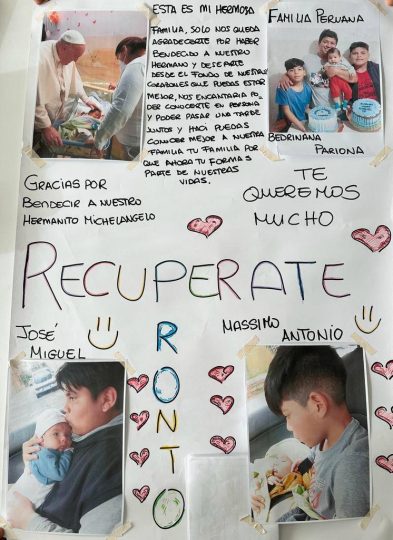 ESTA ES MI HERMOSA
FAMILIA, SOLO NOS QUEDA
AGRADECERTE POR HABER
BENDECIDO A NUESTRO
HERMANO Y DESEARTE
DESDE EL FONDO DE NUESTROS
CORAZONES QUE PUEDAS ESTAR
MEJOR, NOS ENCANTARIA PO
DER CONOCERTE EN PERSONA
Y PODER PASAR UNA TARDE
JUNTOS Y HACI PUEDAS
CONOCER MEJOR A NUESTRA
FAMILIA TU FAMILIA POR
QUE AHORA TU FORMAS
PARTE DE NUESTRAS
VIDAS.
FAMILIA PERUANA
BEDRINANA
PARIONA
GRACIAS POR
BENDECIR A NUESTRO
HERMANITO MICHELANGELO
TE
QUEREMOS
MUCHO
RECUPERATE
PRONTO
JOSÉ
MIGUEL
MASSIMO
ANTONIO